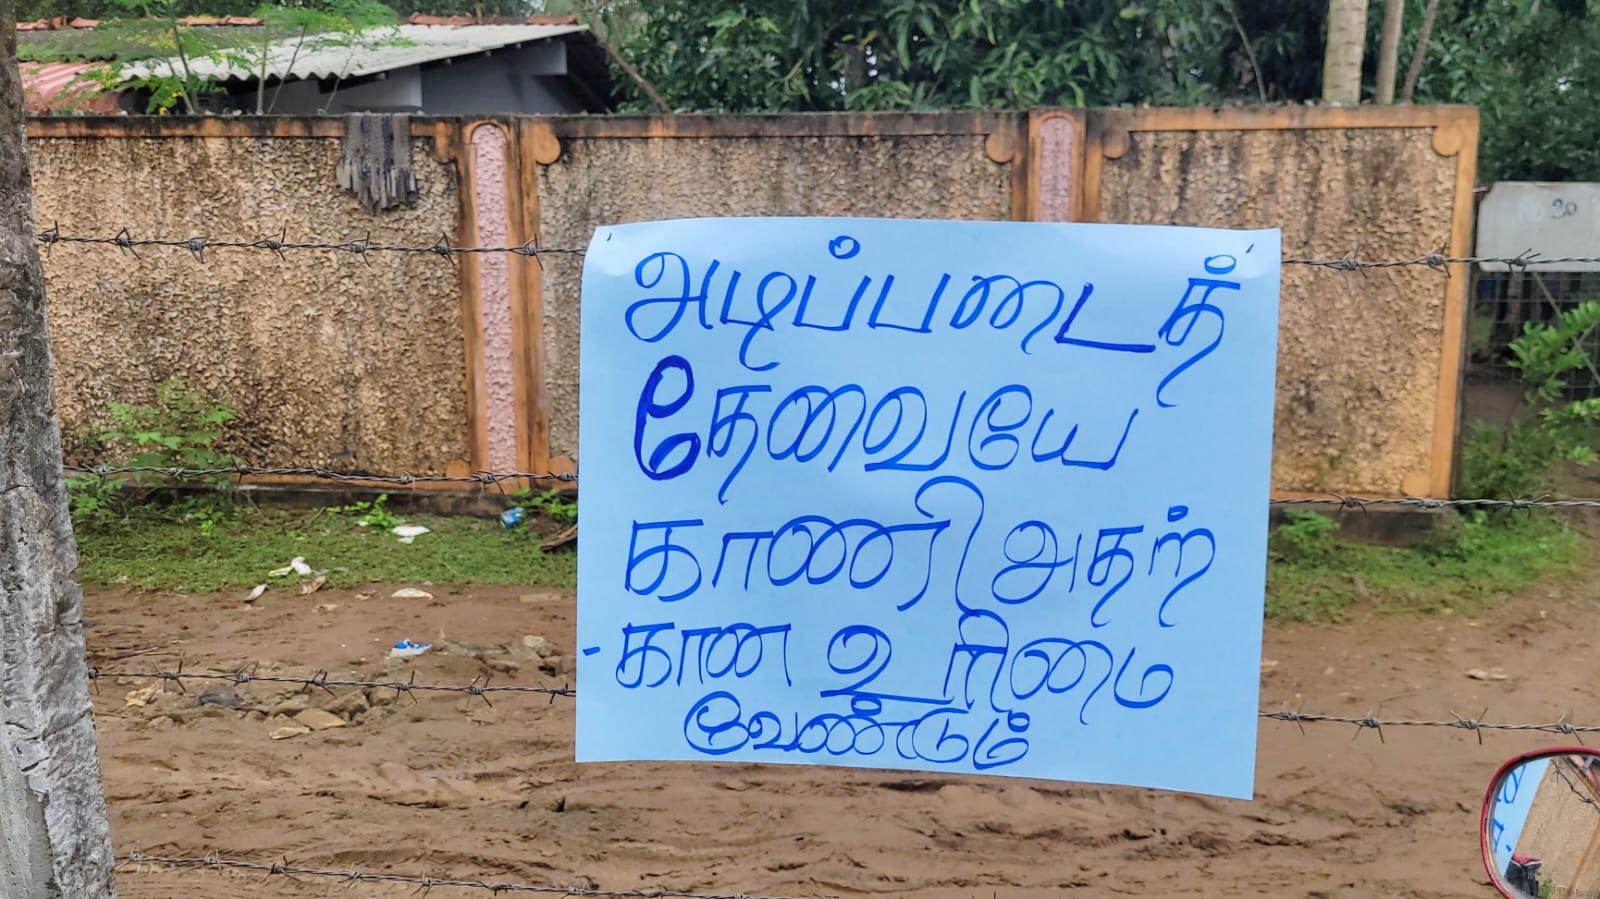 அடிப்படைத்
தேவையே
காணி அதற்
-கான உரிமை
வேண்டும்